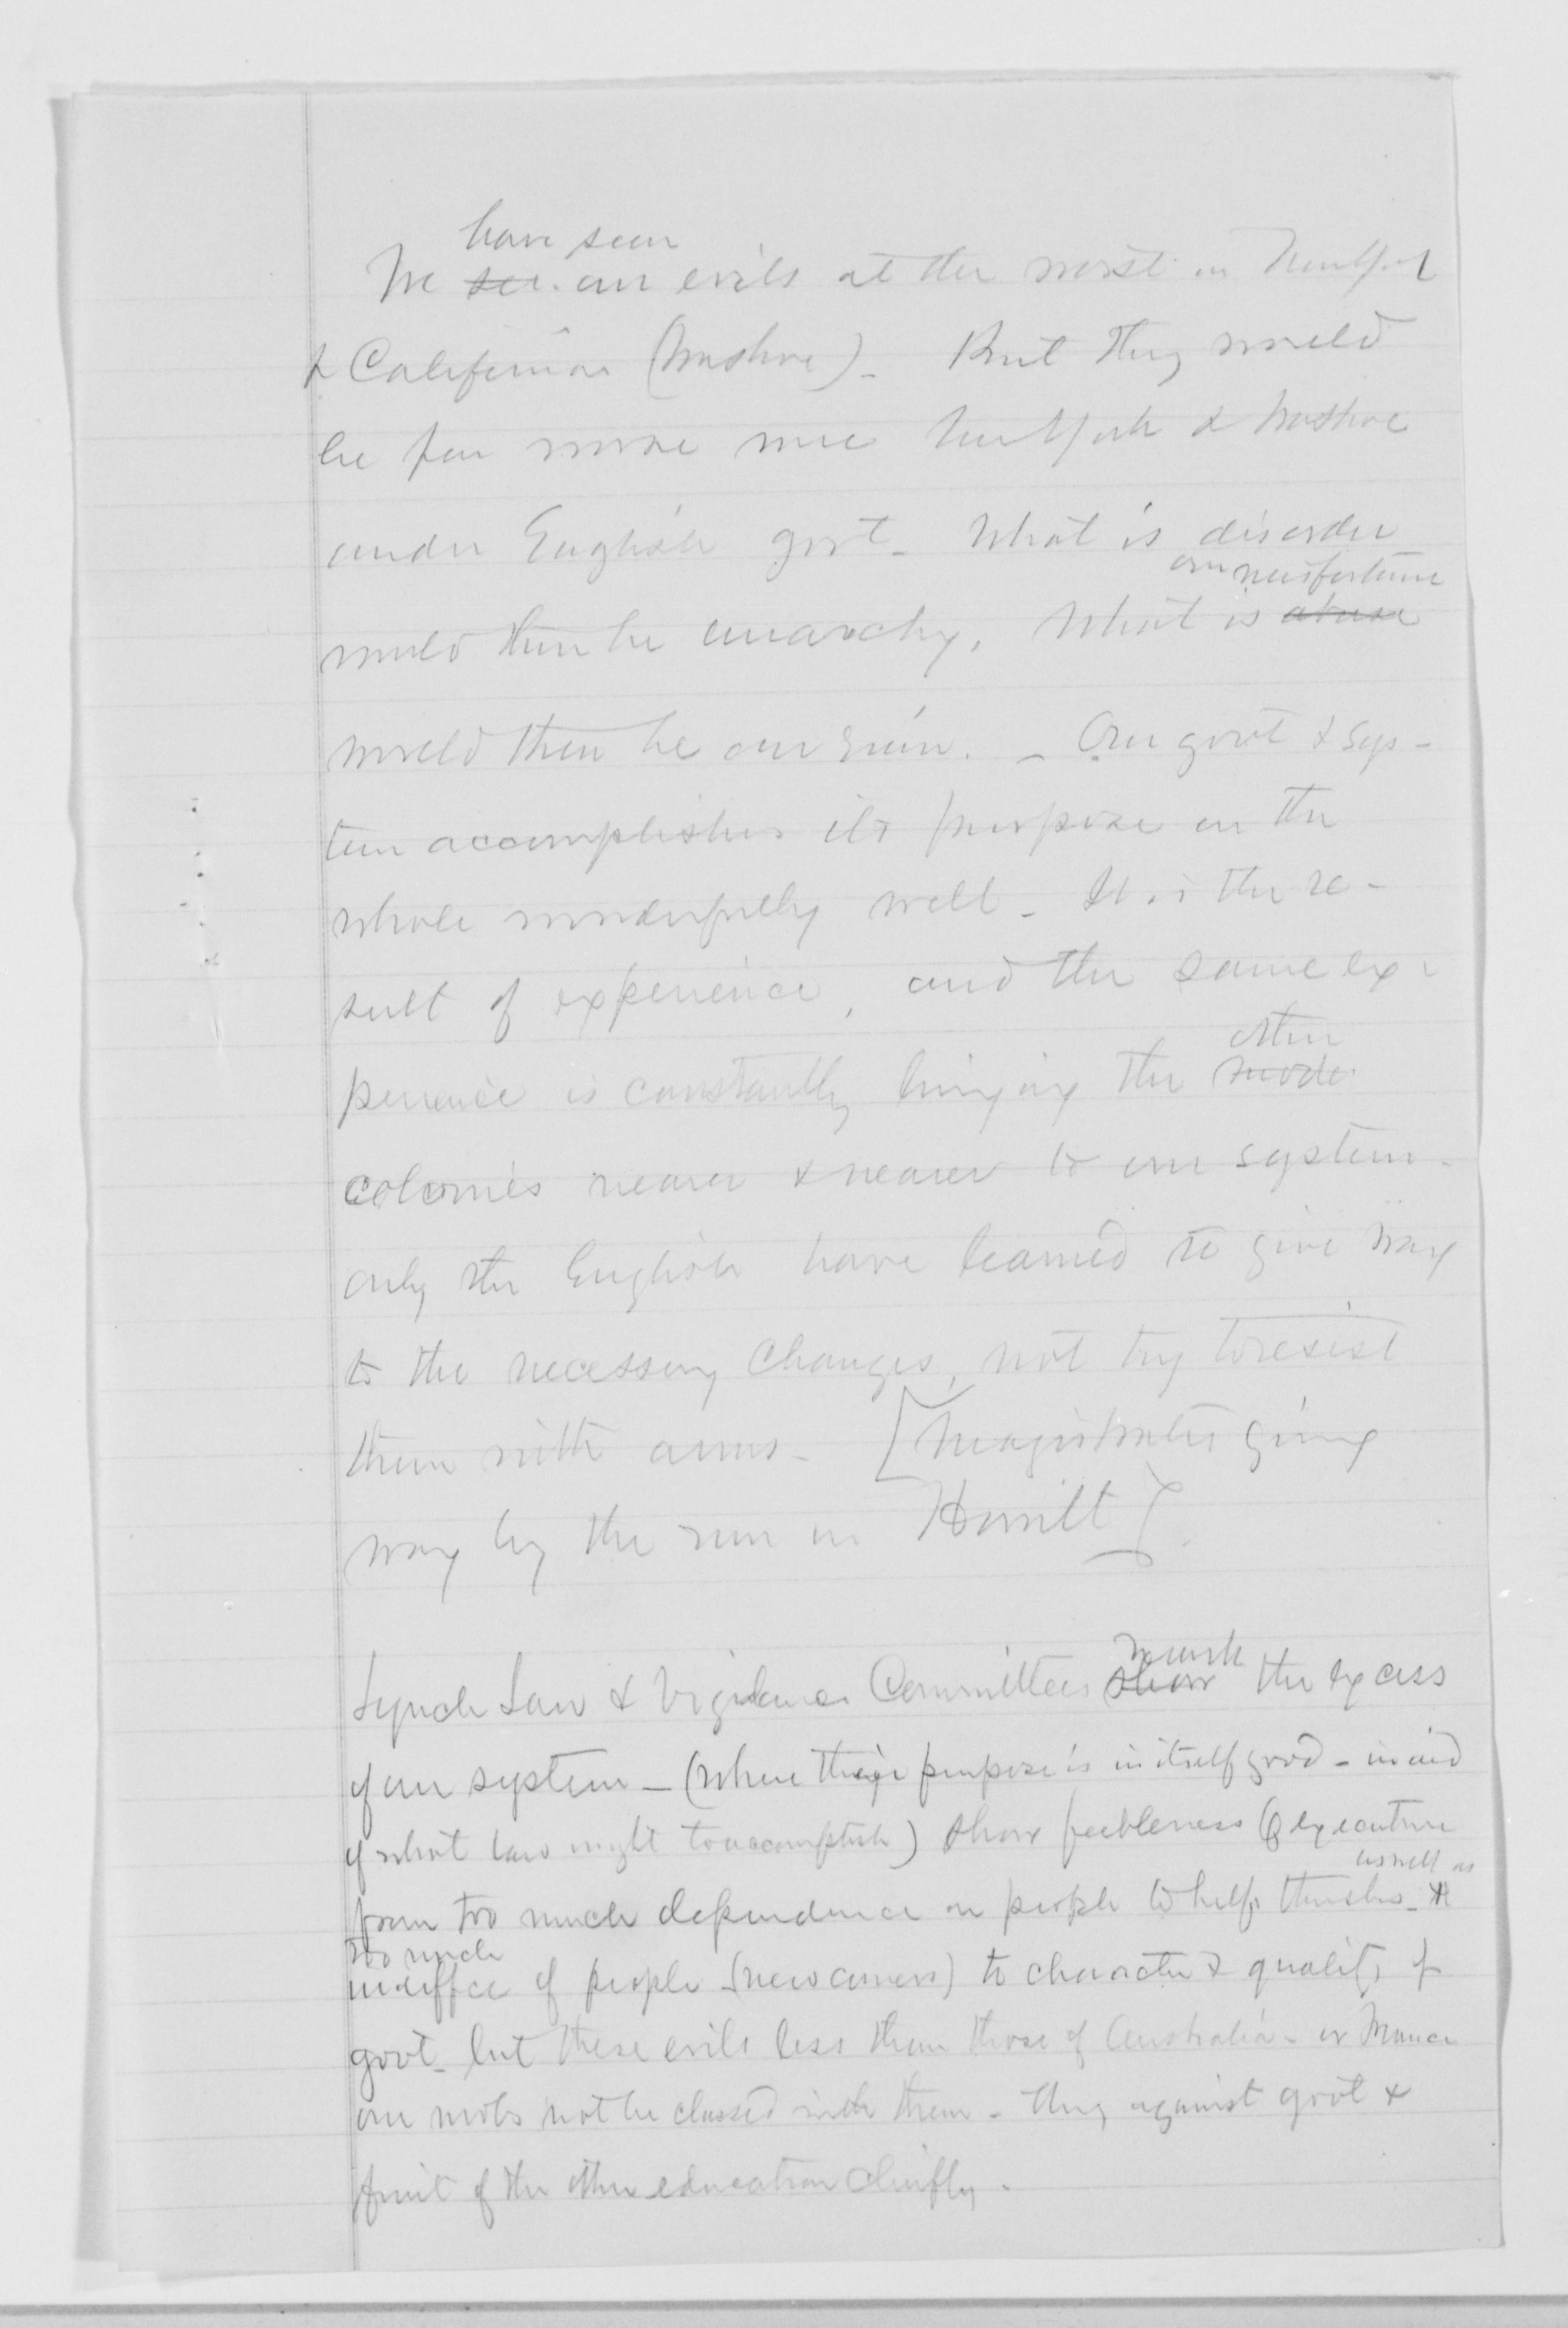 have seen
We see our evils at the worst in New York
& California (Washoe) - But they would
be far more were New York & Washoe
under English govt - What is disorder
our misfortune
would then be anarchy, What is abuse
would then be our ruin. - Our govt & sys-
tem accomplishes its purpose on the
whole wonderfully well - It is the re-
sult of experience, and the same ex-
other
perience is constantly bringing the mode
colonies nearer & nearer to our system -
only the English have learned to give way
to the necessary changes, not try to resist
them with arms - [Magistrates giving
way by the run in Howitt]
mark
Lynch Law & Vigilance Committees show the excess
of our system - (where their purpose is in itself good - in aid
of what law ought to accomplish) show feebleness of executive
as well as
from too much dependence on people to help themselves - &
too much
indiffce of people (new comers) to character & quality of
govt - but these evils less than those of Australia - or France
our mobs not be classed with them - they against govt &
fruit of the other education chiefly -